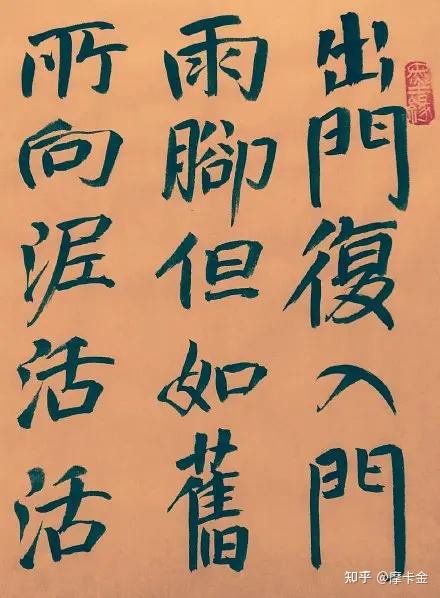 出門復入門
雨腳但如舊
所向泥活活
知乎 @摩卡金